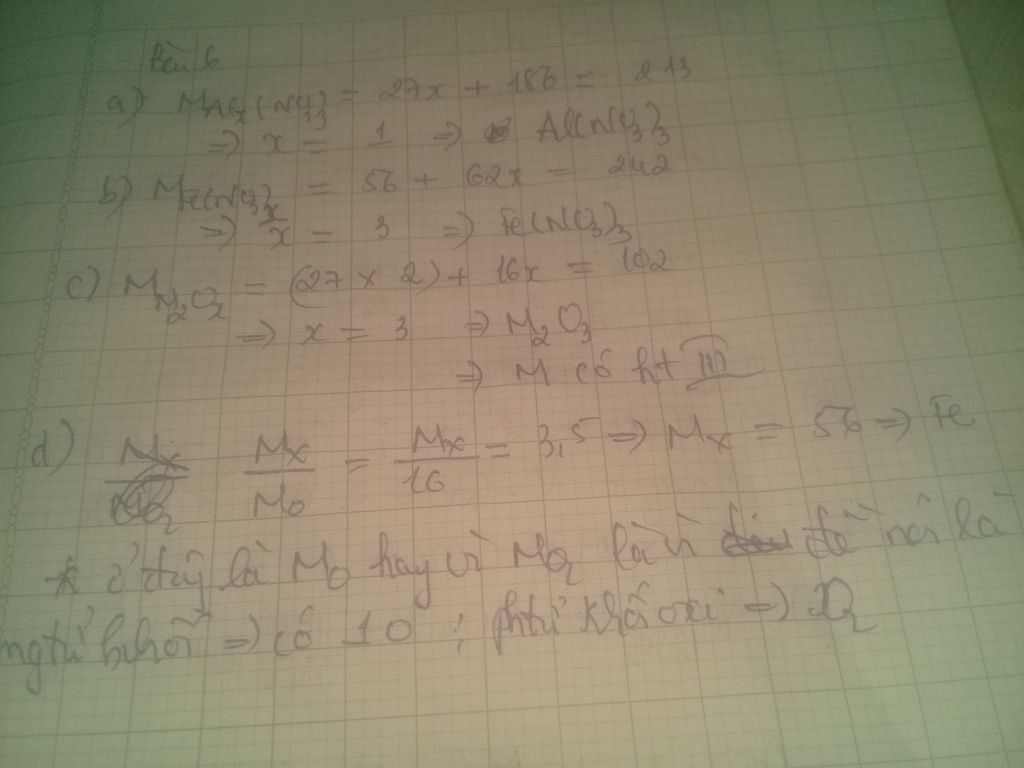 Bài 6
a) M Alx(NO3)3 = 27x + 186 = 213
=> x = 1 => Al(NO3)3
b) M Fe(NO3)x = 56 + 62x = 242
=> x = 3 => Fe(NO3)3
c) M M2Ox = (27 x 2) + 16x = 102
=> x = 3 => M2O3
=> M có ht III
d) Mx/MO = Mx/16 = 3,5 => Mx = 56 => Fe
* ở đây là MO hay vì MO2 là vì đề nói là
ngtử khối => có 1 O ; phtử khối oxi => O2